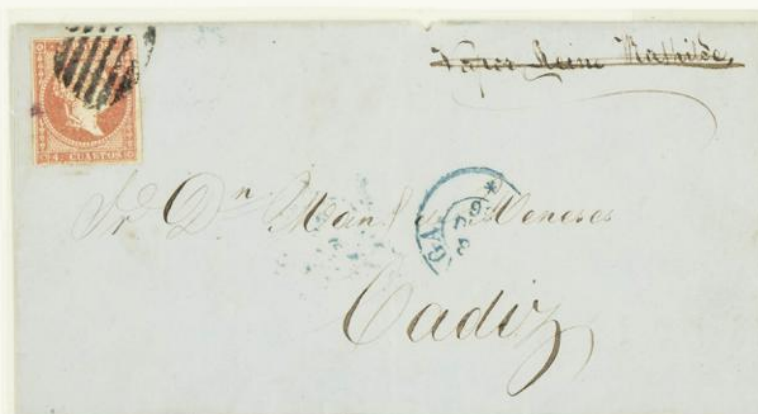 Vapor Reine Mathilde,
4 CUARTOS
Sr. Dn. Man Meneses
GA
Cadiz